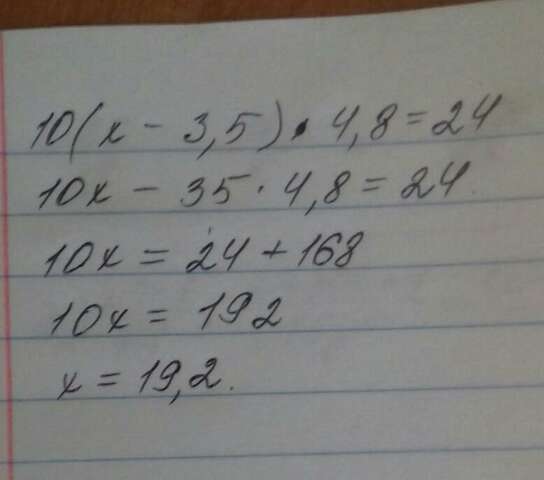 10(x - 3,5) · 4,8 = 24
10x - 35 · 4,8 = 24
10x = 24 + 168
10x = 192
x = 19,2.